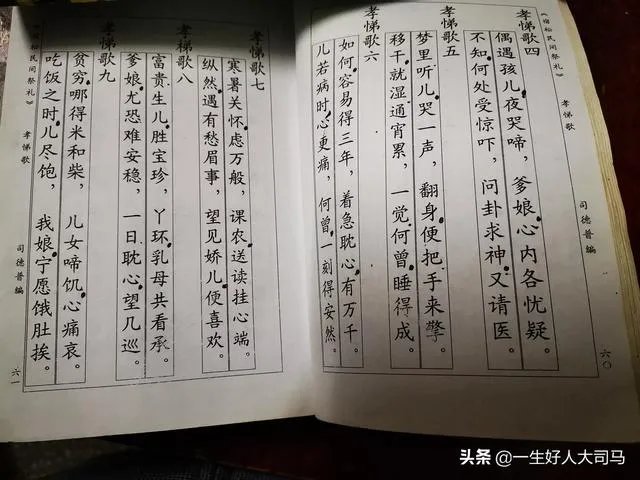 《宿松民间祭礼》 孝悌歌 司德普编 六〇
孝悌歌四
偶遇孩儿夜哭啼，爹娘心内各忧疑。
不知何处受惊吓，问卦求神又请医。
孝悌歌五
梦里听儿哭一声，翻身便把手来擎。
移干就湿通宵累，一觉何曾睡得成。
孝悌歌六
如何容易得三年，着急耽心有万千。
儿若病时心更痛，何曾一刻得安然。
孝悌歌七
寒暑关怀虑万般，课农送读挂心端。
纵然遇有愁眉事，望见娇儿便喜欢。
孝悌歌八
富贵生儿胜宝珍，丫环乳母共看承。
爹娘尤恐难安稳，一日耽心望几巡。
孝悌歌九
贫穷哪得米和柴，儿女啼饥心痛哀。
吃饭之时儿尽饱，我娘宁愿饿肚挨。
《宿松民间祭礼》 孝悌歌 司德普编 六一
头条 @一生好人大司马